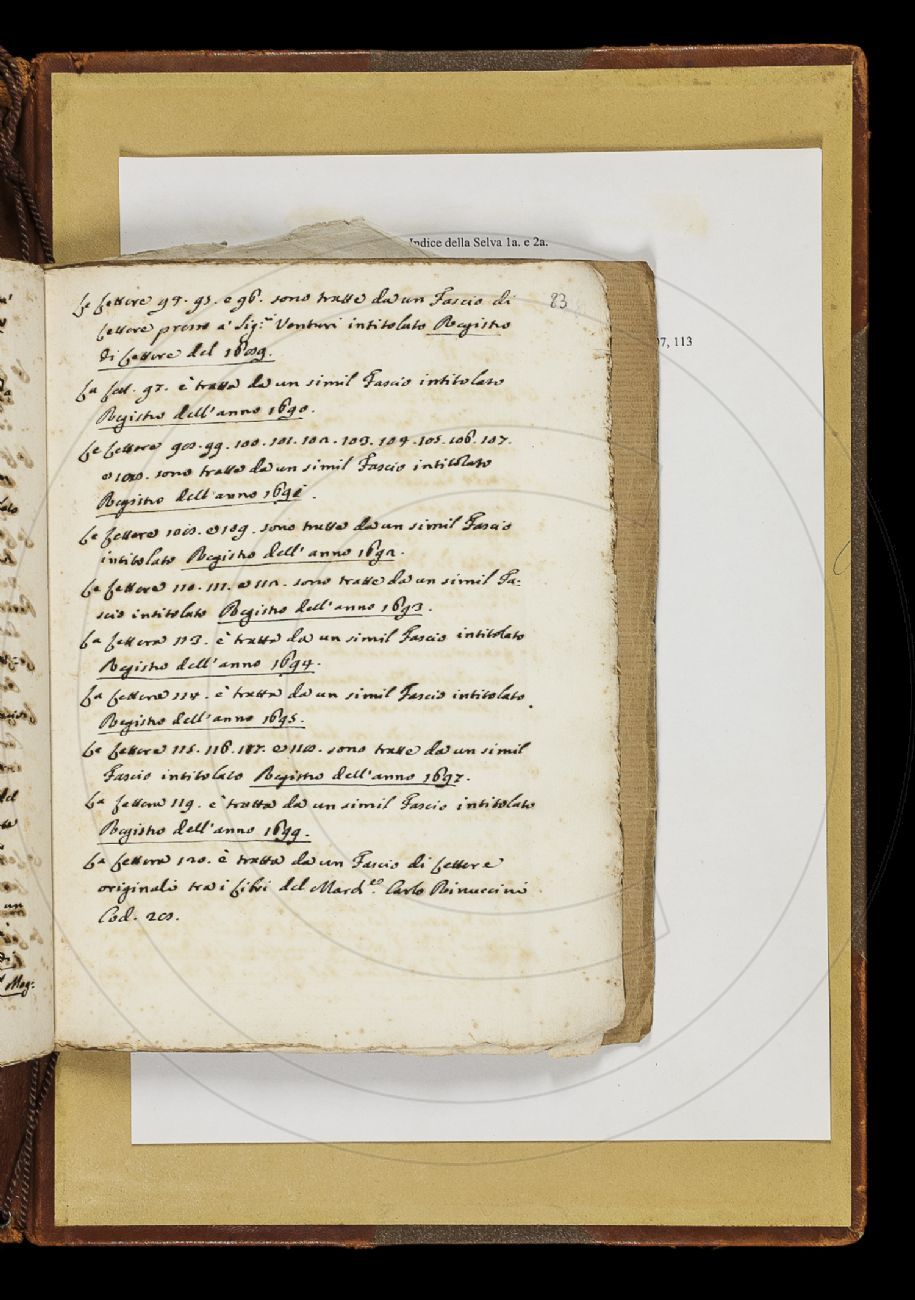 Indice della Selva 1a. e 2a.
97, 113
83
Le Lettere 94. 95. e 96. sono tratte da un Fascio di
Lettere presso a' Sig.ri Venturi intitolato Registro
di Lettere del 1689.
La Let. 97. è tratta da un simil Fascio intitolato
Registro dell'anno 1690.
Le Lettere 98. 99. 100. 101. 102. 103. 104. 105. 106. 107.
e 108. sono tratte da un simil Fascio intitolato
Registro dell'anno 1691.
Le Lettere 108. e 109. sono tratte da un simil Fascio
intitolato Registro dell'anno 1692.
Le Lettere 110. 111. e 112. sono tratte da un simil Fa-
scio intitolato Registro dell'anno 1693.
La Lettera 113. è tratta da un simil Fascio intitolato
Registro dell'anno 1694.
La Lettera 114. è tratta da un simil Fascio intitolato
Registro dell'anno 1695.
Le Lettere 115. 116. 117. e 118. sono tratte da un simil
Fascio intitolato Registro dell'anno 1697.
La Lettera 119. è tratta da un simil Fascio intitolato
Registro dell'anno 1699.
La Lettera 120. è tratta da un Fascio di Lettere
originali tra i Libri del March.e Carlo Rinuccini
Cod. 28.